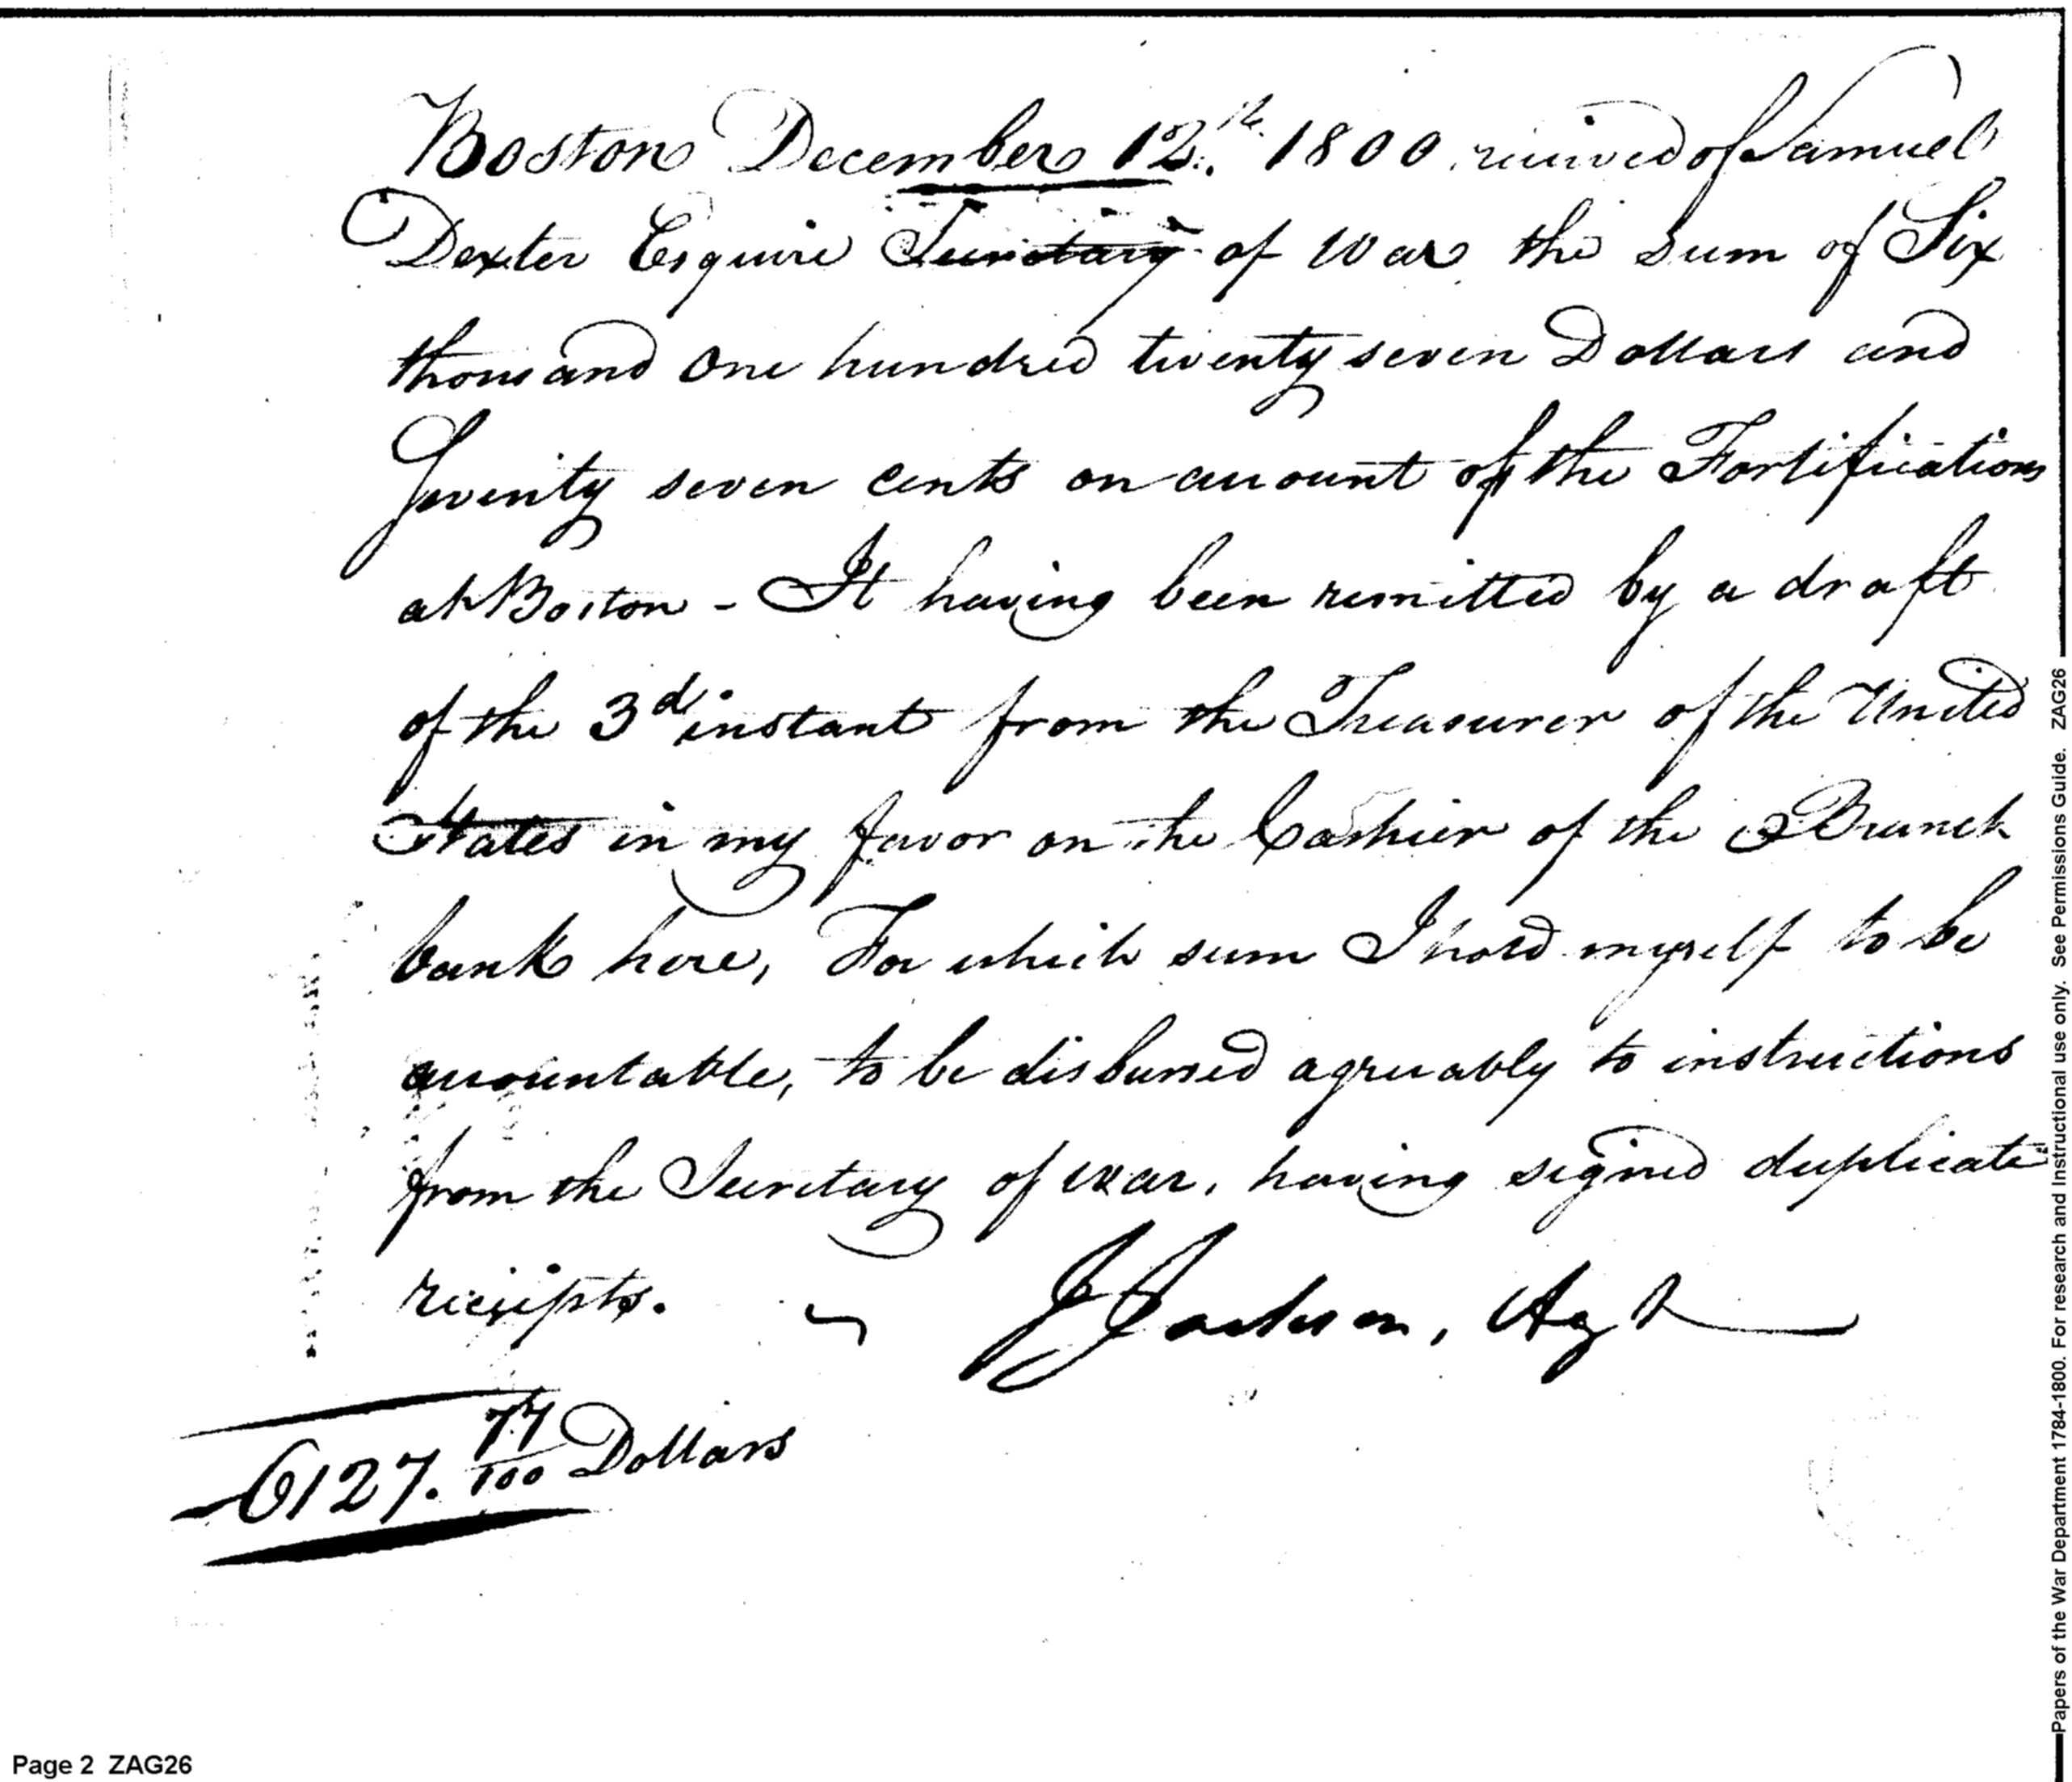 Boston December 12th. 1800. received of Samuel
Dexter Esquire Secretary of War the Sum of Six
thousand One hundred twenty seven Dollars and
Seventy seven cents on account of the Fortifications
at Boston - It having been remitted by a draft
of the 3d instant from the Treasurer of the United
States in my favor on the Cashier of the Branch
bank here, For which sum I hold myself to be
accountable, to be disbursed agreeably to instructions
from the Secretary of War, having signed duplicate
receipts. J Jackson, Agt
6127. 77/100 Dollars
Page 2 ZAG26
Papers of the War Department 1784-1800. For research and Instructional use only. See Permissions Guide. ZAG26